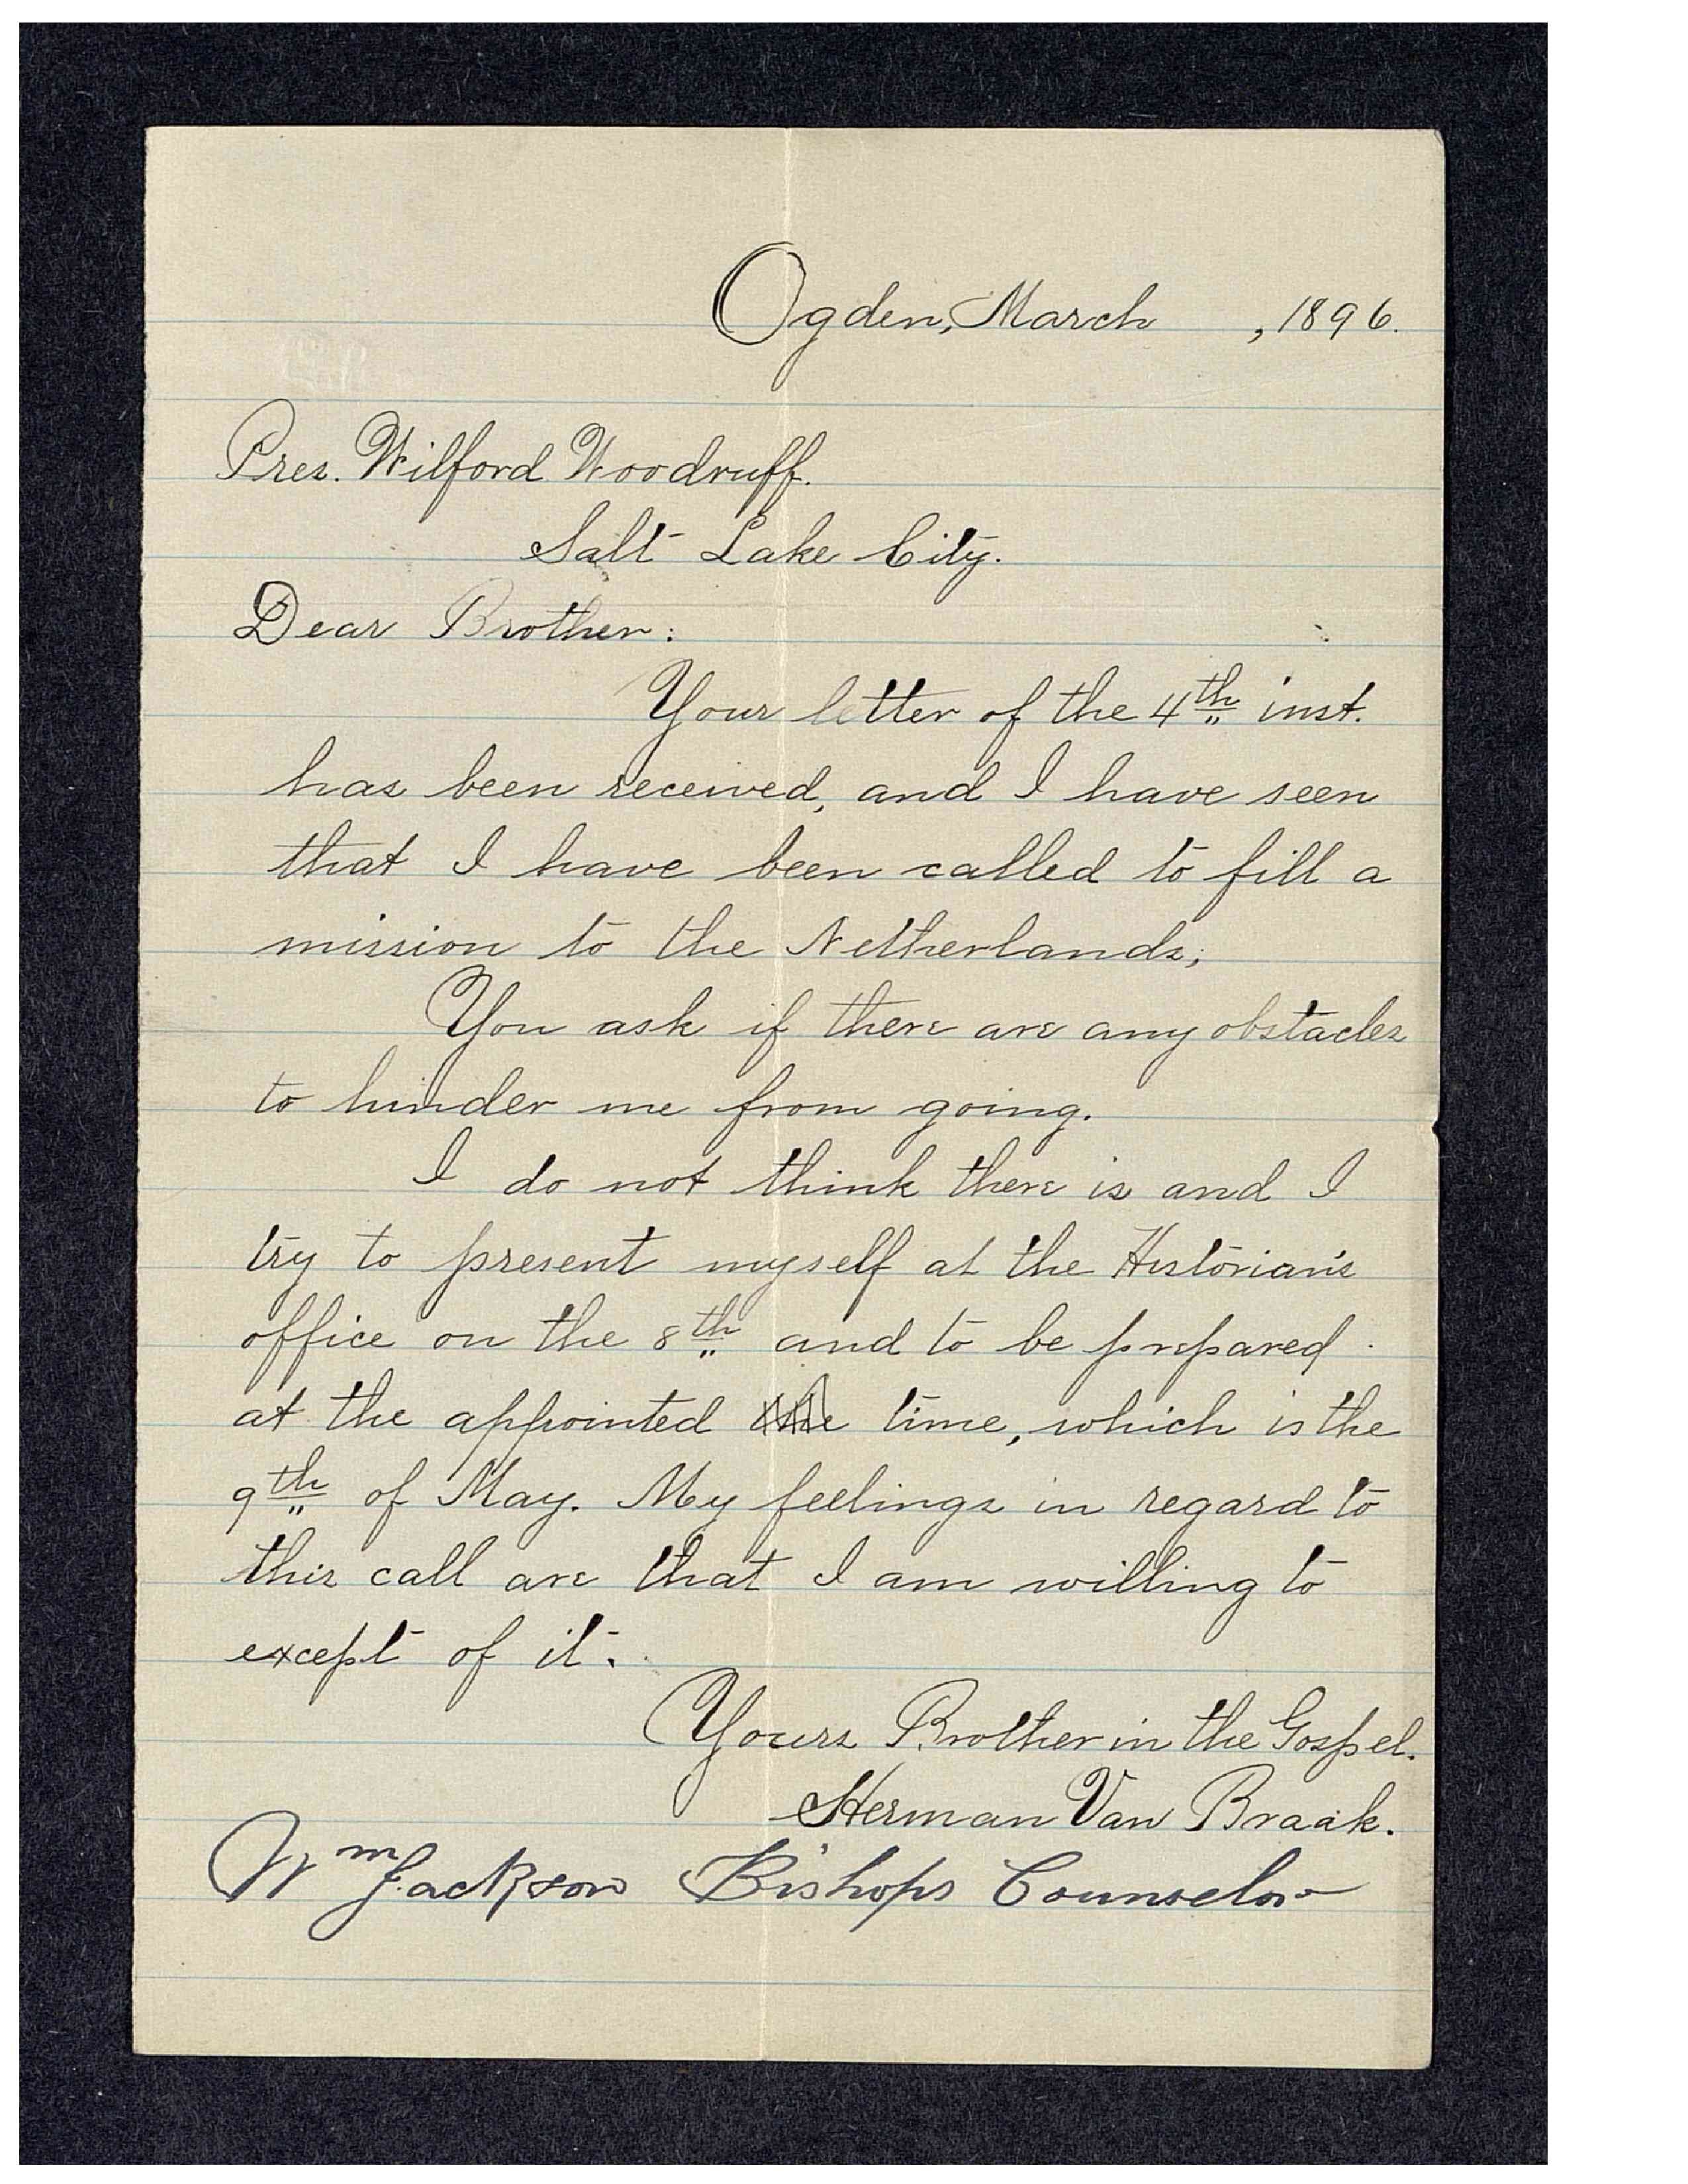 Ogden, March , 1896.
Pres. Wilford Woodruff.
Salt Lake City.
Dear Brother:
Your letter of the 4th inst.
has been received, and I have seen
that I have been called to fill a
mission to the Netherlands;
You ask if there are any obstacles
to hinder me from going.
I do not think there is and I
try to present myself at the Historian's
office on the 8th and to be prepared
at the appointed the time, which is the
9th of May. My feelings in regard to
this call are that I am willing to
except of it.
Yours Brother in the Gospel.
Herman Van Braak.
Wm Jackson Bishops Counselor